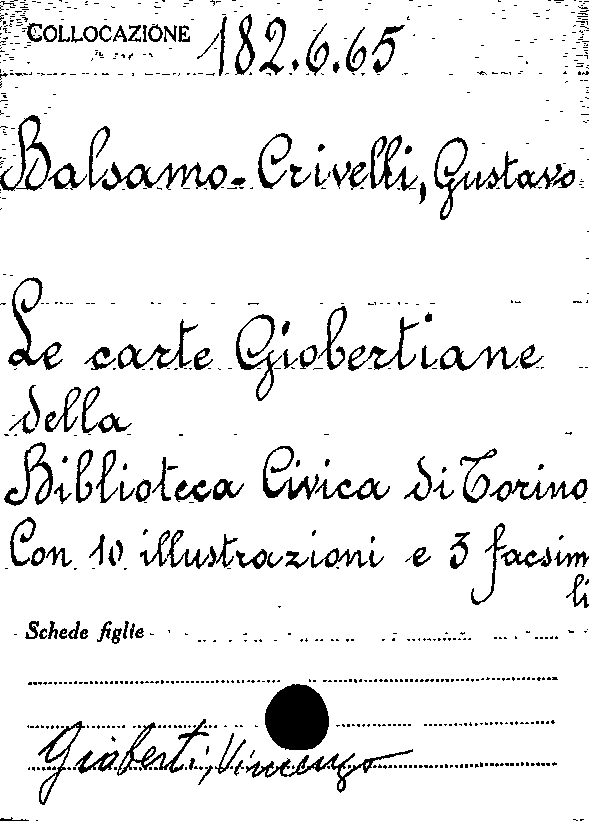 COLLOCAZIONE 182.6.65
Balsamo-Crivelli, Gustavo
Le carte Giobertiane
della
Biblioteca Civica di Torino
Con 10 illustrazioni e 3 facsim
li
Schede figlie
Gioberti, Vincenzo